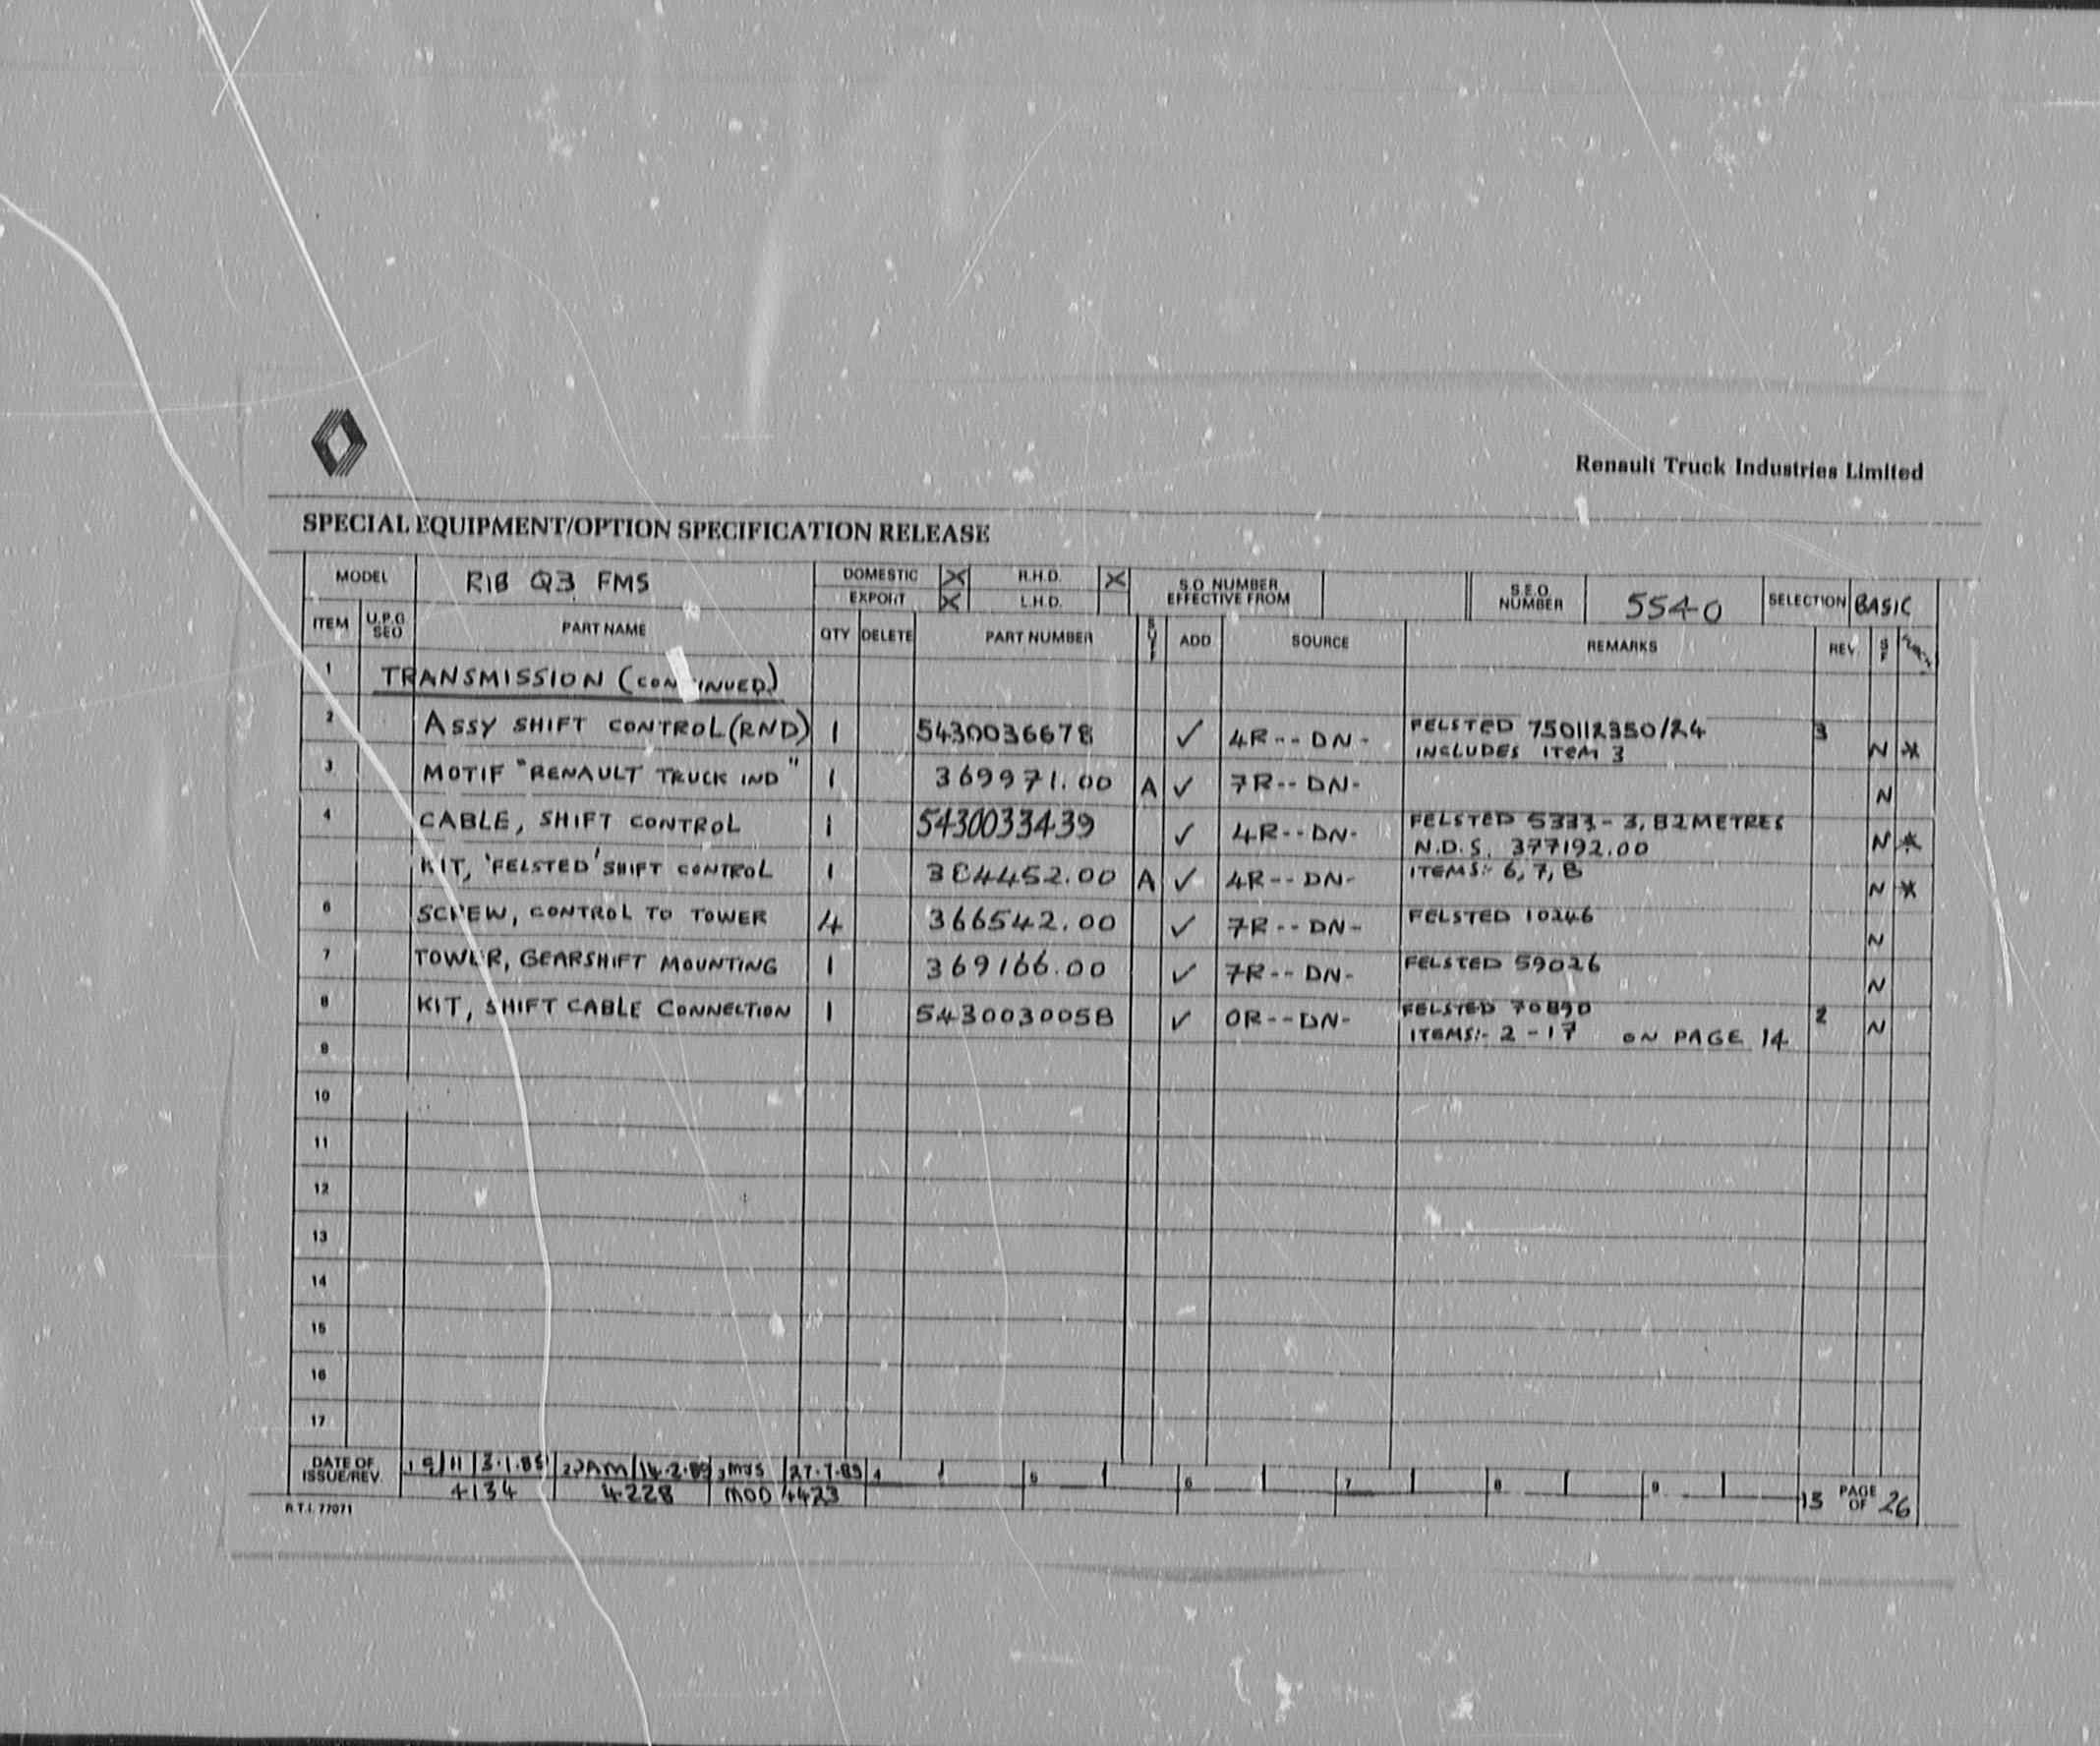 Renault Truck Industries Limited
SPECIAL EQUIPMENT/OPTION SPECIFICATION RELEASE
MODEL R18 Q3 FMS DOMESTIC X R.H.D. X S.O. NUMBER EFFECTIVE FROM S.E.O. NUMBER 5540 SELECTION BASIC
EXPORT X L.H.D.
ITEM U.P.G SEO PART NAME QTY DELETE PART NUMBER ADD SOURCE REMARKS REV
1 TRANSMISSION (CONTINUED)
2 ASSY SHIFT CONTROL (RND) 1 5430036678 ✓ 4R--DN- FELSTED 750112350/24 3
INCLUDES ITEM 3 N *
3 MOTIF "RENAULT TRUCK IND" 1 369971.00 A ✓ 7R--DN- N
4 CABLE, SHIFT CONTROL 1 5430033439 ✓ 4R--DN- FELSTED 5333-3,82 METRES
N.D.S. 377192.00 N *
KIT, 'FELSTED' SHIFT CONTROL 1 384452.00 A ✓ 4R--DN- ITEMS:- 6,7,8 N *
6 SCREW, CONTROL TO TOWER 4 366542.00 ✓ 7R--DN- FELSTED 10246 N
7 TOWER, GEARSHIFT MOUNTING 1 369166.00 ✓ 7R--DN- FELSTED 59026 N
8 KIT, SHIFT CABLE CONNECTION 1 5430030058 ✓ 0R--DN- FELSTED 70890 2
ITEMS:- 2-17 ON PAGE 14 N
9
10
11
12
13
14
15
16
17
DATE OF ISSUE/REV. 1 3.1.85 2 JAM 14.2.85 3 MJS 27.7.89 4 5 6 7 8 9 13 PAGE OF 26
4134 4228 MOD 4423
R.T.I. 77071